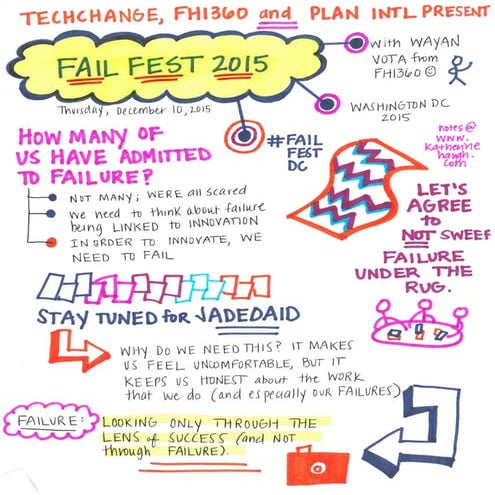 TECHCHANGE, FHI360 and PLAN INTL PRESENT
FAIL FEST 2015
with WAYAN
VOTA from
FHI360 ☺
Thursday, December 10, 2015
WASHINGTON DC
2015
#FAIL
FEST
DC
notes@
www.
katherine
haugh.
com
HOW MANY OF
US HAVE ADMITTED
TO FAILURE?
NOT MANY; WERE all SCARED
We need to think about failure
being LINKED TO INNOVATION
IN ORDER TO INNOVATE, WE
NEED TO FAIL
LET'S
AGREE
to
NOT SWEEP
FAILURE
UNDER THE
RUG.
STAY TUNED for JADEDAID
WHY DO WE NEED THIS? IT MAKES
US FEEL UNCOMFORTABLE, BUT IT
KEEPS US HONEST about the WORK
that we do (and especially our FAILURES)
FAILURE:
LOOKING ONLY THROUGH THE
LENS of SUCCESS (and NOT
through FAILURE).